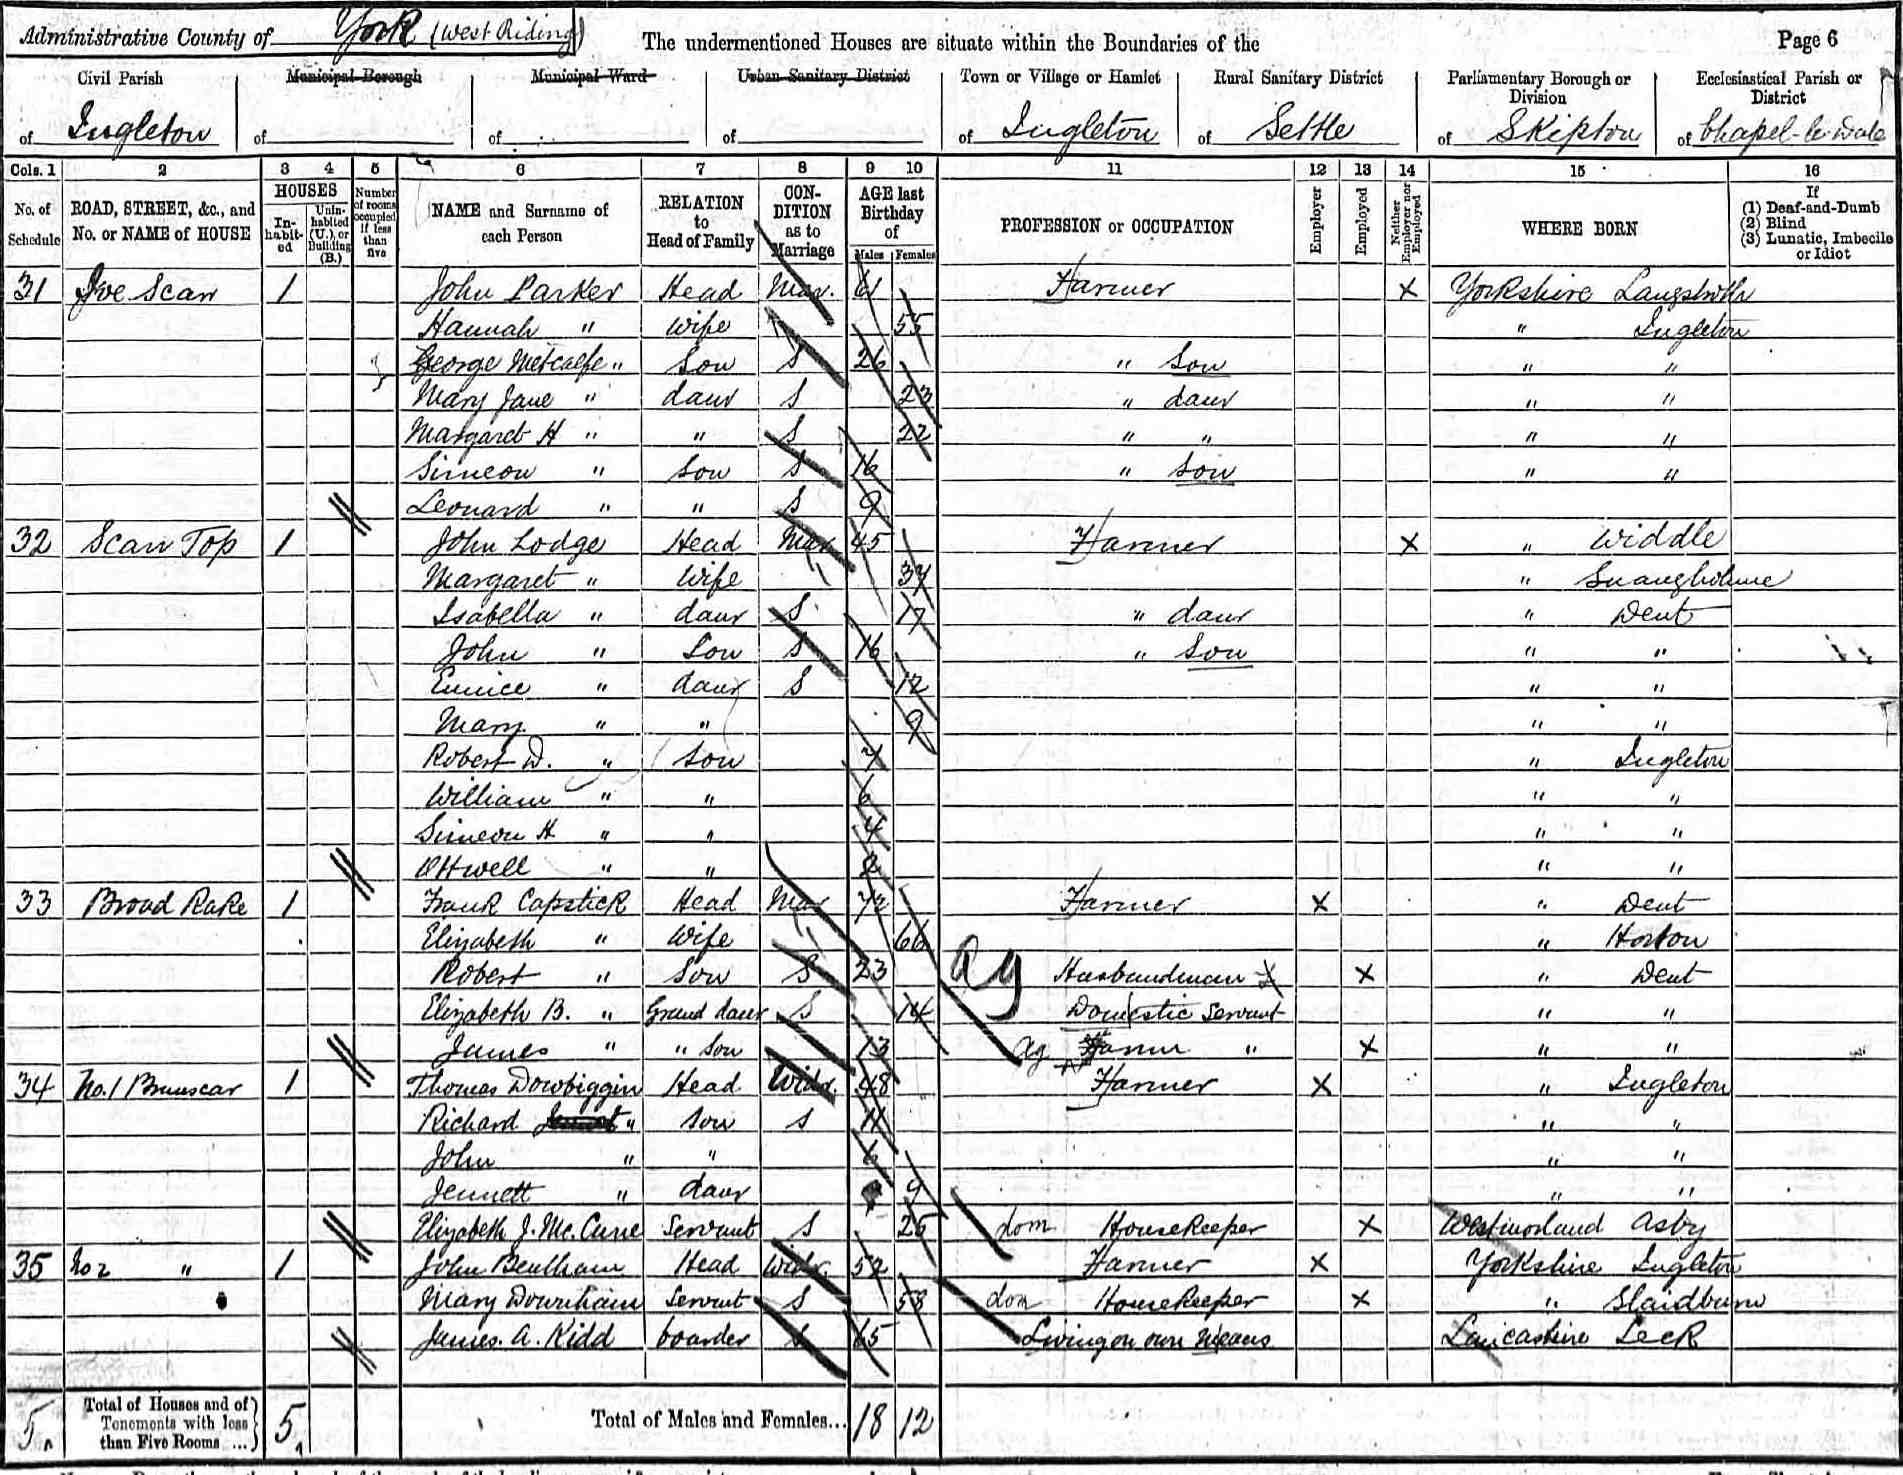 Administrative County of York (West Riding) The undermentioned Houses are situate within the Boundaries of the Page 6
Civil Parish Municipal Borough Municipal Ward Urban Sanitary District Town or Village or Hamlet Rural Sanitary District Parliamentary Borough or Division Ecclesiastical Parish or District
of Ingleton of of of of Ingleton of Settle of Skipton of Chapel-le-Dale
Cols. 1 2 3 4 5 6 7 8 9 10 11 12 13 14 15 16
No. of Schedule ROAD, STREET, &c., and No. or NAME of HOUSE HOUSES In-habit-ed Unin-habited (U.), or Building (B.) Number of rooms occupied if less than five NAME and Surname of each Person RELATION to Head of Family CON-DITION as to Marriage AGE last Birthday of Males Females PROFESSION or OCCUPATION Employer Employed Neither Employer nor Employed WHERE BORN If (1) Deaf-and-Dumb (2) Blind (3) Lunatic, Imbecile or Idiot
31 Ive Scar 1 John Parker Head Mar. 61 Farmer X Yorkshire Langstroth
Hannah " Wife 55 " Ingleton
George Metcalfe " Son S 26 " Son " "
Mary Jane " daur S 23 " daur " "
Margaret H " " S 22 " " " "
Simeon " Son S 16 " Son " "
Leonard " " S 9
32 Scar Top 1 John Lodge Head Mar 45 Farmer X " Widdle
Margaret " Wife " 37 "
Isabella " daur S 17 " daur " Dent
John " Son S 16 " Son " "
Eunice " daur S 12 " "
Mary " " 9 " "
Robert D. " Son 7 " Ingleton
William " " 6 " "
Simeon H " " 4 " "
Ottwell " " 2 " "
33 Broad Rake 1 Frank Capstick Head Mar 72 Farmer X " Dent
Elizabeth " Wife " 66 " Horton
Robert " Son S 23 Ag Husbandman X " Dent
Elizabeth B. " Grand daur S 14 Domestic Servant " "
James " " son 13 Ag Farm " X " "
34 No. 1 Brunscar 1 Thomas Dowbiggin Head Widr 48 Farmer X " Ingleton
Richard " Son S 11 " "
John " " 6 " "
Jennett " daur 9 " "
Elizabeth J. McCune Servant S 25 dom Housekeeper X Westmorland Asby
35 No 2 " 1 John Bentham Head Widr 52 Farmer X Yorkshire Ingleton
Mary Downham Servant S 58 dom Housekeeper X " Slaidburn
James A. Kidd boarder S 65 Living on own Means Lancashire Leck
5 Total of Houses and of Tenements with less than Five Rooms ... 5 Total of Males and Females... 18 12